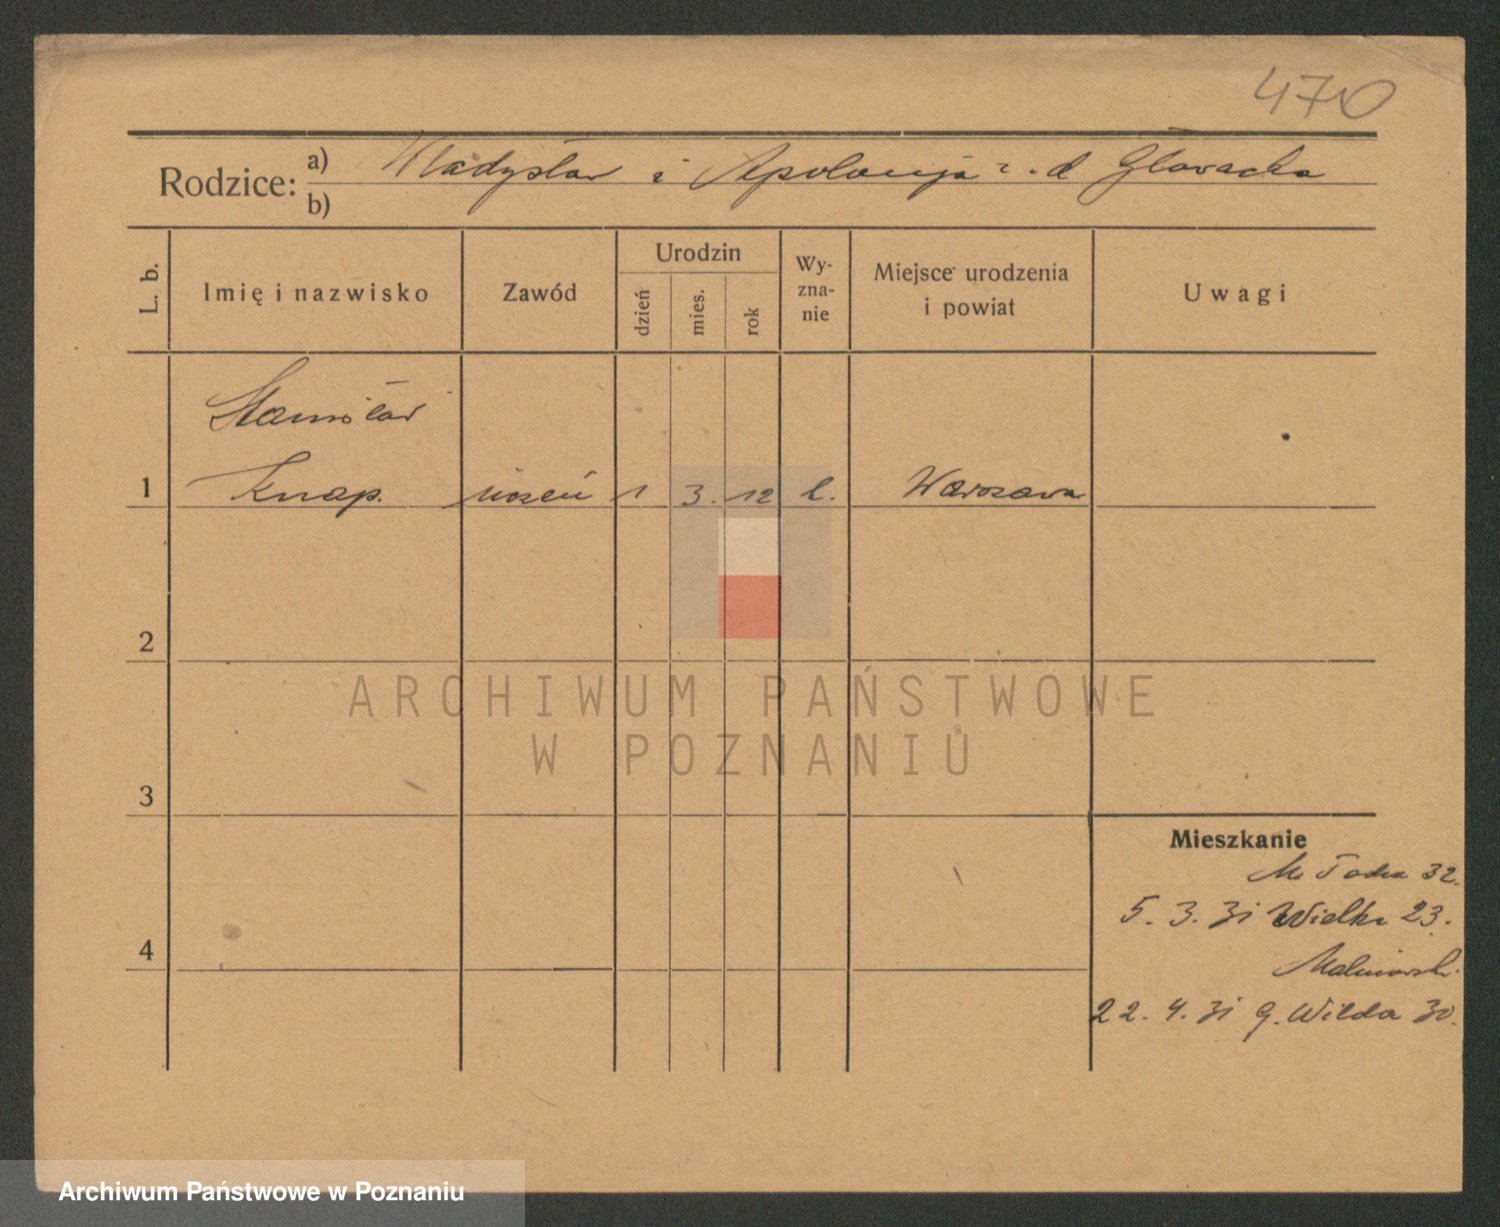 470
Rodzice: a) Władysław i Apolonja z. d Głowacka
b)
L. b.
Imię i nazwisko
Zawód
Urodzin
dzień
mies.
rok
Wy-
zna-
nie
Miejsce urodzenia
i powiat
Uwagi
Stanisław
1 Knap. uczeń 1 3. 12 k. Warszawa
2
ARCHIWUM PAŃSTWOWE
W POZNANIU
3
Mieszkanie
32.
5. 3. 31 Wielka 23.
4
Malinowski
22. 4. 31 G. Wilda 30.
Archiwum Państwowe w Poznaniu